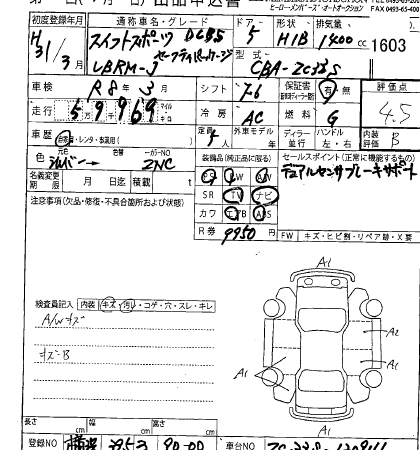 初度登録年月
H31年/3月
通称車名・グレード
スイフトスポーツ DCBS
セーフティパッケージ
LBRM-J
ドア
5
形状
H/B
排気量
1400cc
1603
型式
CBA-ZC33S
車検
R8年3月
シフト
F6
保証書
有・無
評価点
4.5
走行
5万9,969
冷房
AC
燃料
G
車歴
自家用・レンタ・事業用( )
定員
4人
外車モデル
年
ディーラー
並行
ハンドル
左・右
内装
評価
B
色
元色
シルバー
色替
カラーNO
ZNC
名義変更
期限
月 日迄
積載
t
装備品(純正品に限る)
PS PW AW
SR TV ナビ
カワ エアB ABS
R券 9950円
セールスポイント(正常に機能するもの)
デュアルセンサブレーキサポート
注意事項(欠品・修復・不具合箇所および状態)
FW キズ・ヒビ割・リペア跡・X要
検査員記入
内装
キズ・汚れ・コゲ・穴・スレ・キレ
A/Wキズ
キズB
A1
A1
A1
A1
長さ
cm
幅
cm
高さ
cm
登録NO
車台NO